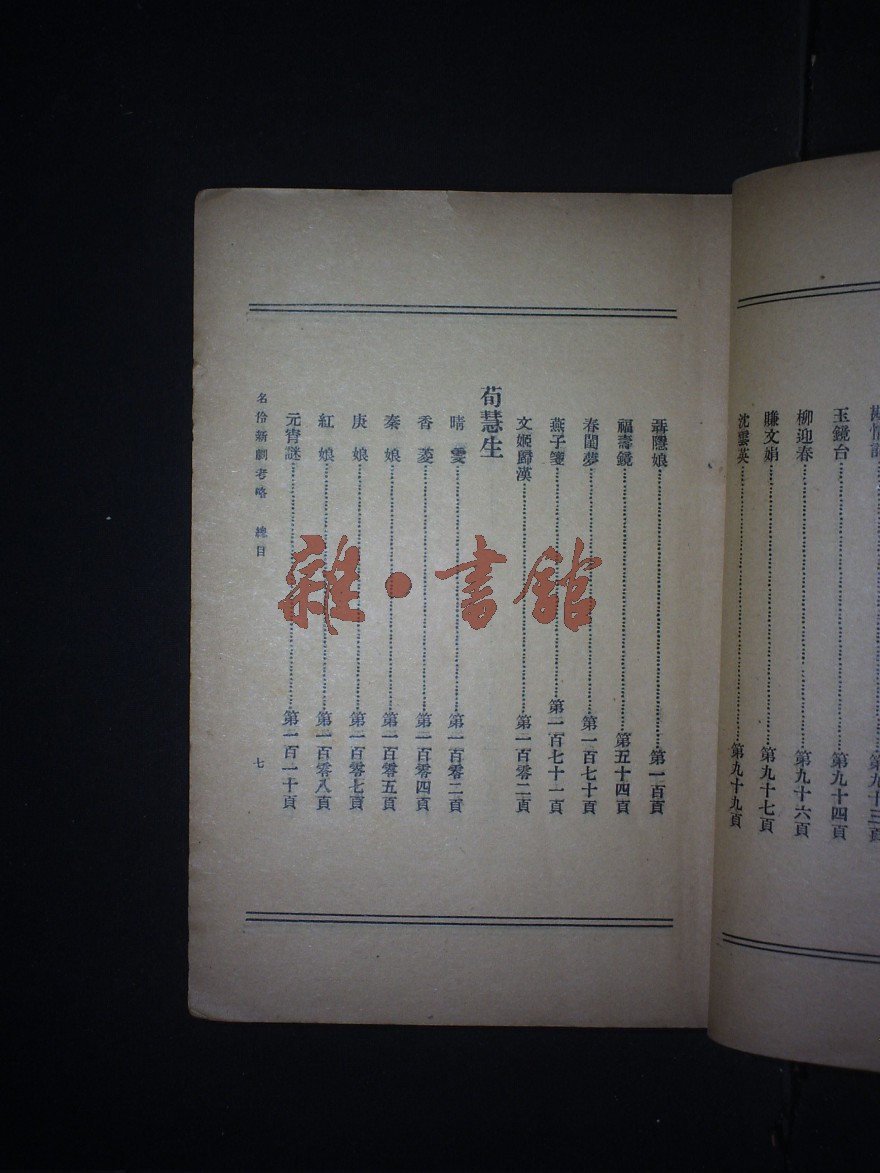 玉鏡台……第九十四頁
柳迎春……第九十六頁
賺文娟……第九十七頁
沈雲英……第九十九頁
聶隱娘……第一百頁
福壽鏡……第五十四頁
春閨夢……第一百七十頁
燕子箋……第一百七十一頁
文姬歸漢……第一百零二頁
荀慧生
晴雯……第一百零二頁
香菱……第一百零四頁
秦娘……第一百零五頁
庚娘……第一百零七頁
紅娘……第一百零八頁
元宵謎……第一百一十頁
名伶新劇考略 總目 七
雜·書館